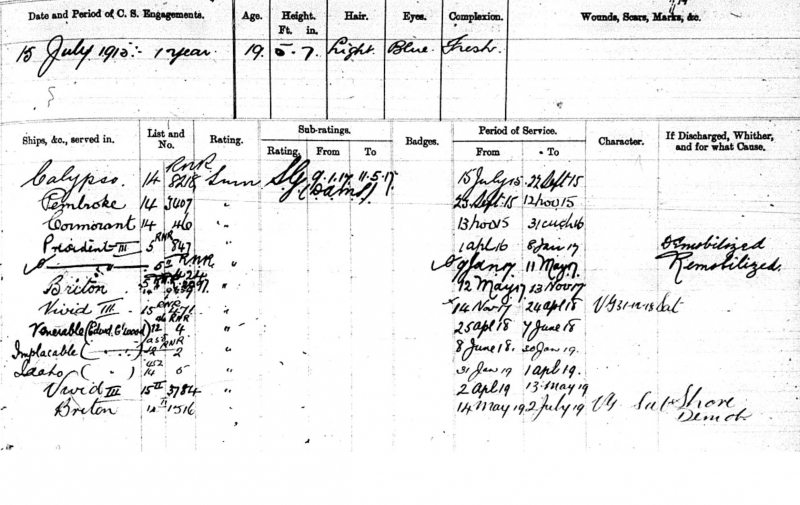 Date and Period of C. S. Engagements. Age. Height. Ft. in. Hair. Eyes. Complexion. Wounds, Scars, Marks, &c.
15 July 1915:- 1 year. 19. 5. 7. Light. Blue. Fresh.
Ships, &c., served in. List and No. Rating. Sub-ratings. Rating. From To Badges. Period of Service. From To Character. If Discharged, Whither, and for what Cause.
Calypso. 14 RNR 8218 Smn SG 9.1.17 11.5.17. (DAMS) 15 July 15 22 Sept 15
Pembroke 14 3407 " 23 Sept 15 12 Nov 15
Cormorant 14 46 " 13 Nov 15 31 16
President III 5 RNR 847 " 1 Apl 16 8 Jan 17 Demobilized
" RNR " 9 Jan 17 11 May 17. Remobilized.
Briton " 12 May 17 13 Nov 17
Vivid III. 15 RNR 471 " 14 Nov 17 24 Apl 18 VG 31-12-18 Sat
Venerable (Edwd. ) 12 RNR 4 " 25 Apl 18 7 June 18
Implacable ( " ) RNR 2 " 8 June 18. 30 Jan 19.
Idaho ( " ) 14 6 " 31 Jan 19 1 Apl 19.
Vivid III 15 II 3784 " 2 Apl 19 13 May 19
Briton 1516 " 14 May 19 2 July 19 VG Sat Shore
Demob.